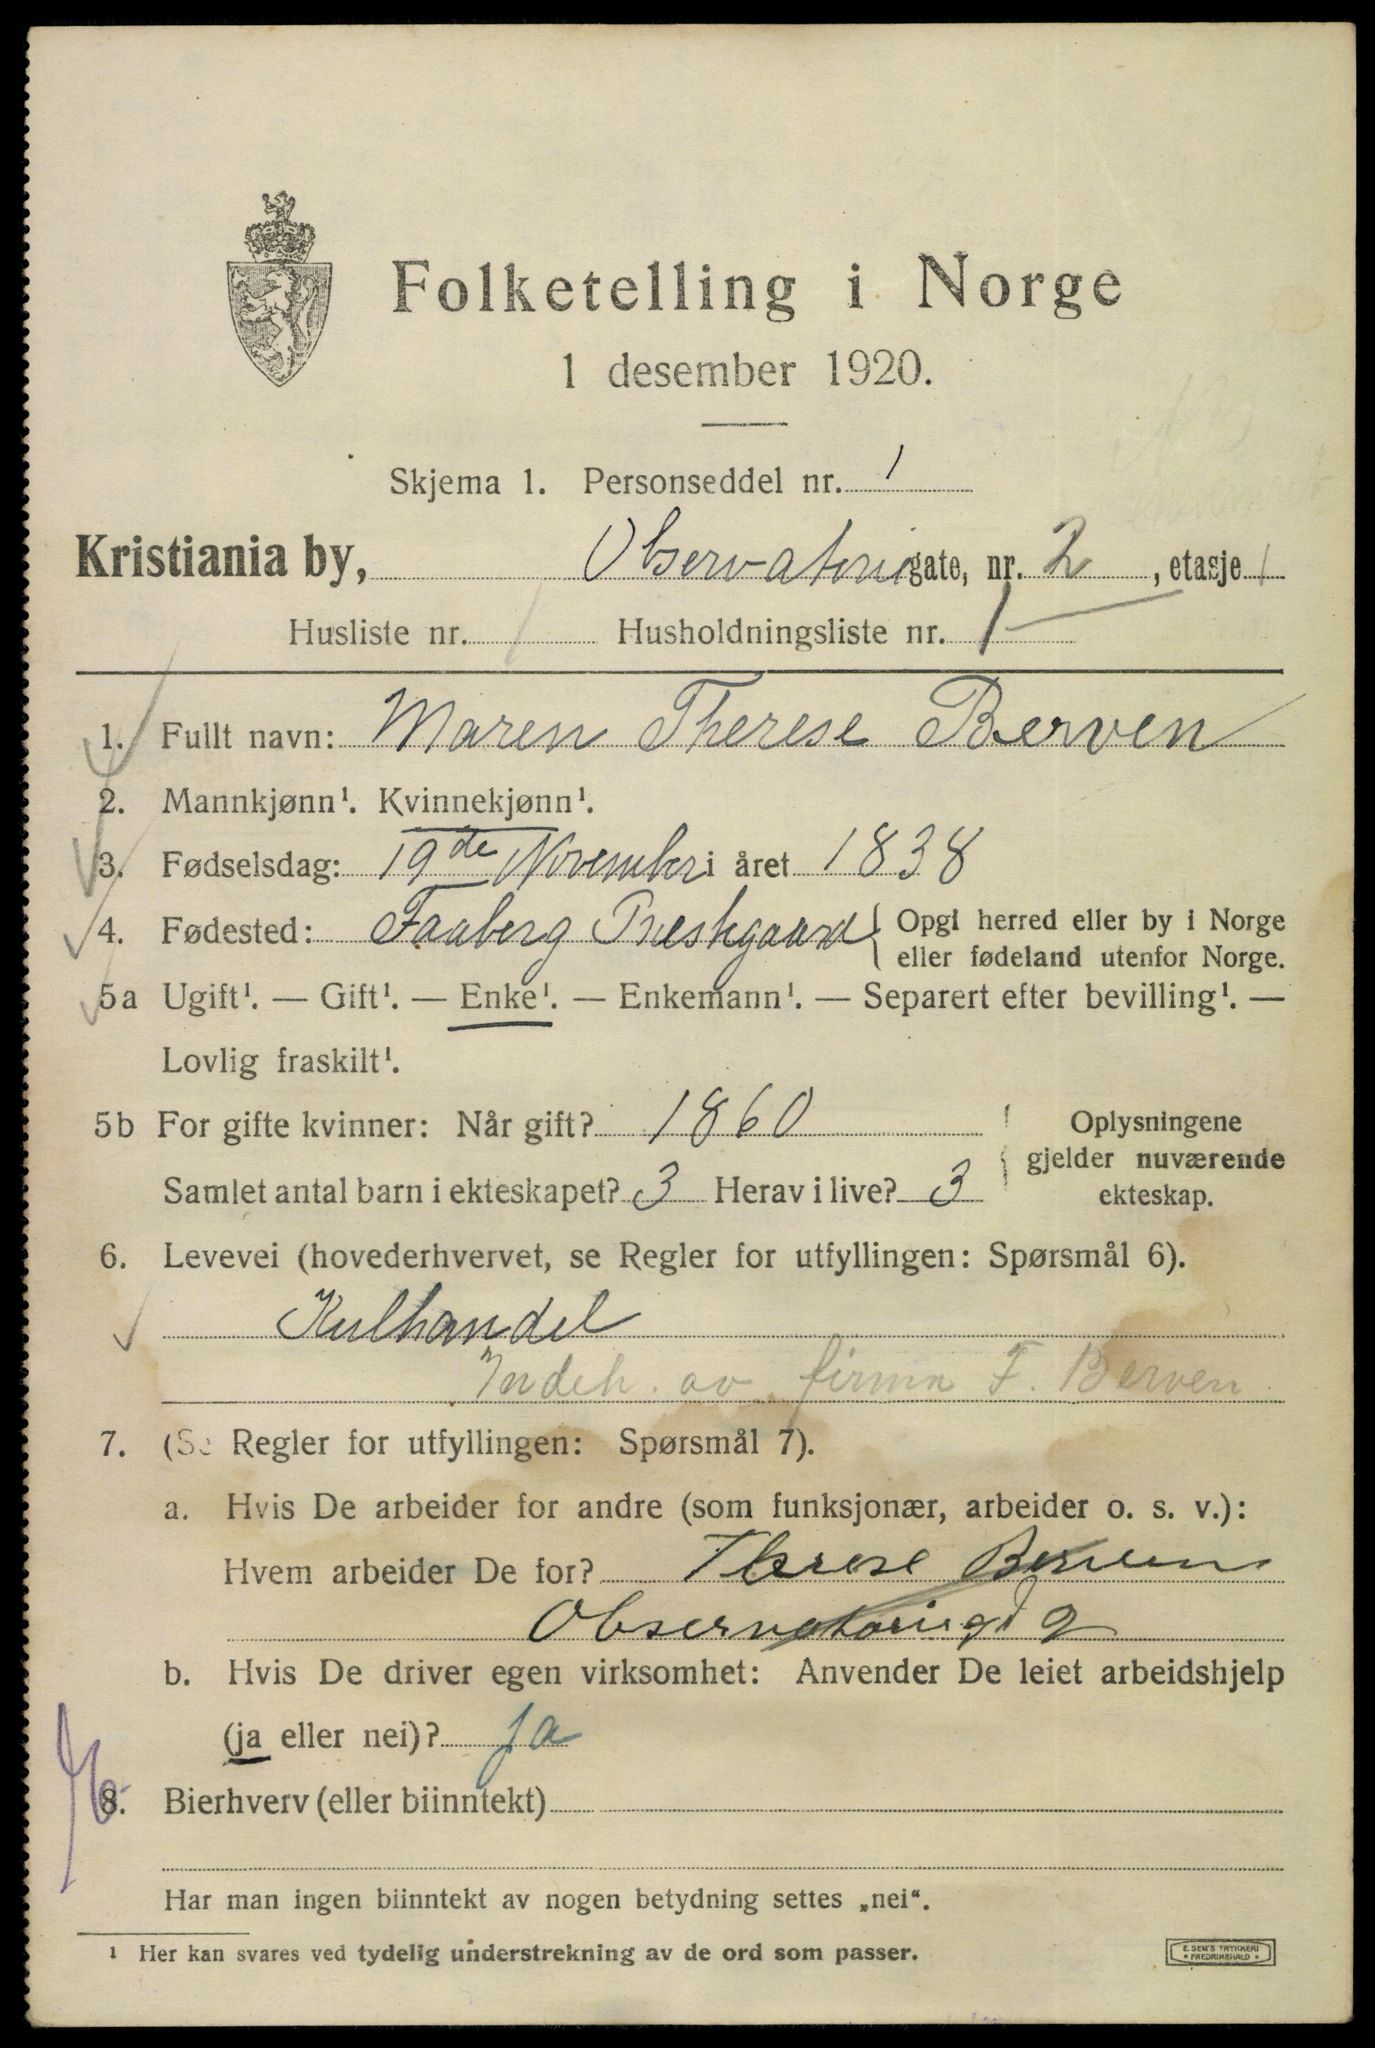 Folketelling i Norge
1 desember 1920.
Skjema 1. Personseddel nr. 1
Kristiania by, Observatoriegate, nr. 2, etasje 1
Husliste nr. 1 Husholdningsliste nr. 1
1. Fullt navn: Maren Therese Berven
2. Mannkjønn¹. Kvinnekjønn¹.
3. Fødselsdag: 19de November i året 1838
4. Fødested: Faaberg Prestegaard { Opgi herred eller by i Norge
eller fødeland utenfor Norge.
5a Ugift¹. — Gift¹. — Enke¹. — Enkemann¹. — Separert efter bevilling¹. —
Lovlig fraskilt¹.
5b For gifte kvinner: Når gift? 1860
Samlet antal barn i ekteskapet? 3 Herav i live? 3
Oplysningene
gjelder nuværende
ekteskap.
6. Levevei (hovederhvervet, se Regler for utfyllingen: Spørsmål 6).
Kulhandel
Indeh. av firma F. Berven
7. (Se Regler for utfyllingen: Spørsmål 7).
a. Hvis De arbeider for andre (som funksjonær, arbeider o. s. v.):
Hvem arbeider De for? Therese Berven
Observatoriegt 2
b. Hvis De driver egen virksomhet: Anvender De leiet arbeidshjelp
(ja eller nei)? ja
8. Bierhverv (eller biinntekt)
Har man ingen biinntekt av nogen betydning settes „nei“.
¹ Her kan svares ved tydelig understrekning av de ord som passer.
E. SEM'S TRYKKERI
• FREDRIKSHALD •